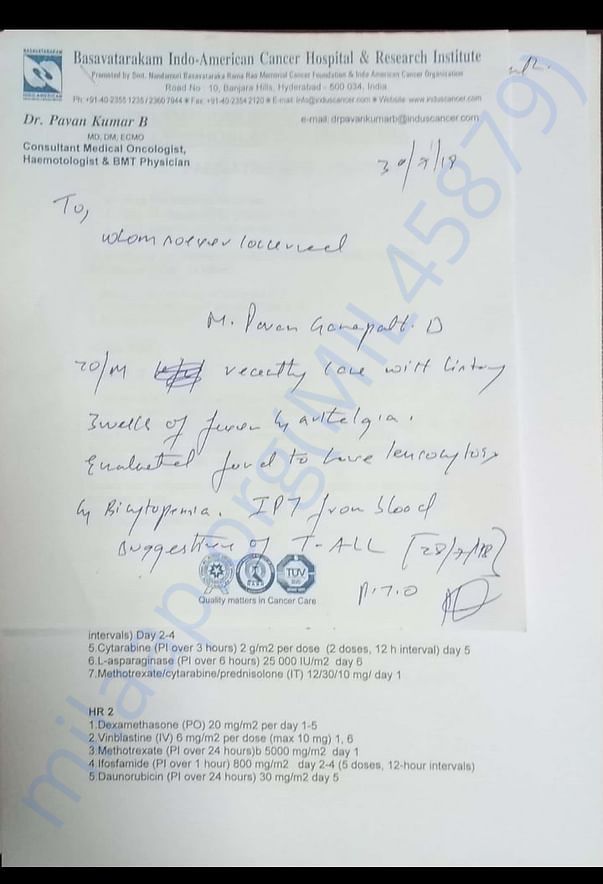 BASAVATARAKAM
INDO-AMERICAN
Basavatarakam Indo-American Cancer Hospital & Research Institute
Promoted by Smt. Nandamuri Basavataraka Rama Rao Memorial Cancer Foundation & Indo American Cancer Organisation
Road No : 10, Banjara Hills, Hyderabad - 500 034, India
Ph: +91-40 2355 1235 / 2360 7944 Fax: +91-40 2354 2120 E-mail: info@induscancer.com Website: www.induscancer.com
Dr. Pavan Kumar B
e-mail: drpavankumarb@induscancer.com
MD, DM, ECMO
Consultant Medical Oncologist,
Haemotologist & BMT Physician
30/7/18
To,
whom soever concerned
M. Pavan Ganapati. D
20/M recently came with history
3 weeks of fever & arthralgia.
Evaluated found to have leucocytosis
& Bicytopenia. IPT from blood
suggestive of T-ALL [28/7/18]
P.T.O
NABH
TUV
Quality matters in Cancer Care
intervals) Day 2-4
5.Cytarabine (PI over 3 hours) 2 g/m2 per dose (2 doses, 12 h interval) day 5
6.L-asparaginase (PI over 6 hours) 25 000 IU/m2 day 6
7.Methotrexate/cytarabine/prednisolone (IT) 12/30/10 mg/ day 1
HR 2
1.Dexamethasone (PO) 20 mg/m2 per day 1-5
2.Vinblastine (IV) 6 mg/m2 per dose (max 10 mg) 1, 6
3.Methotrexate (PI over 24 hours)b 5000 mg/m2 day 1
4.Ifosfamide (PI over 1 hour) 800 mg/m2 day 2-4 (5 doses, 12-hour intervals)
5.Daunorubicin (PI over 24 hours) 30 mg/m2 day 5
milaap.org(MIL45879)